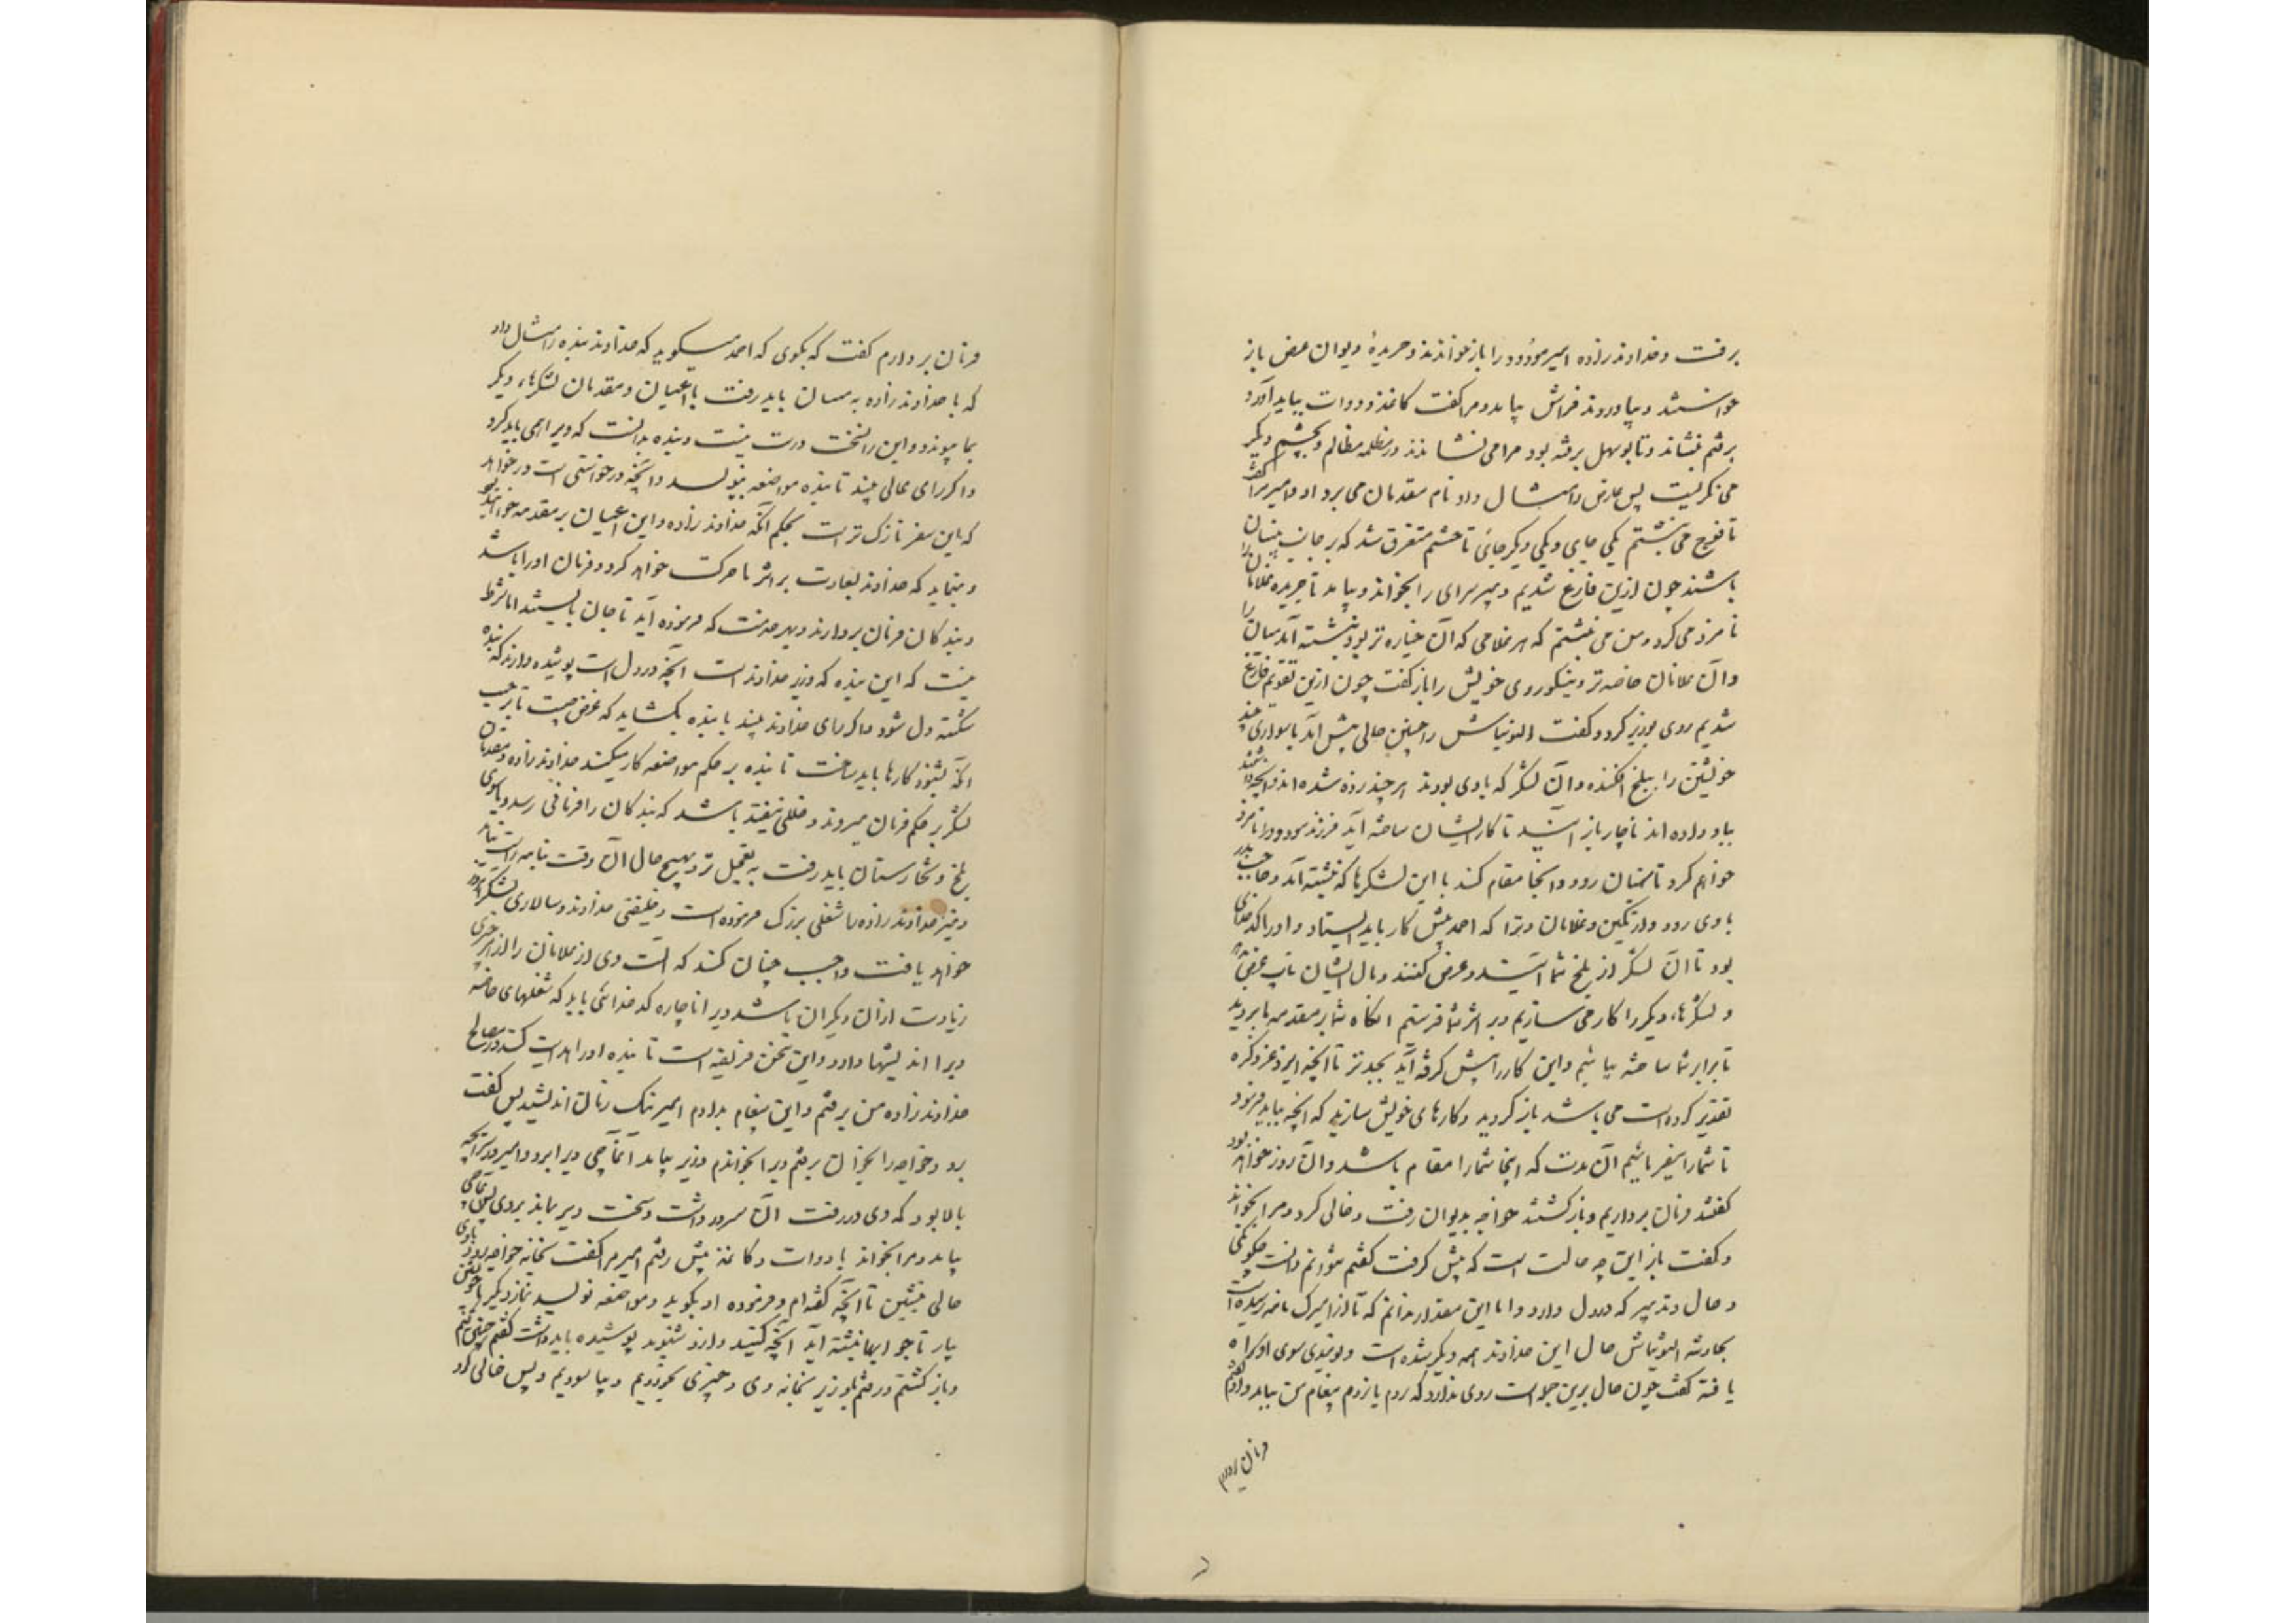 برفت و خداوندزاده امیر مودود را باز خواندند و جریدهٔ دیوان عرض باز
خواستند و بیاوردند فراش بیامد و مرا گفت کاغذ و دوات بباید آورد
برفتم بنشاند و تا بوسهل برفته بود مرا می نشاندند در مظلمه مظالم و بچشم دیگر
می نگریست پس عارض را مثال داد نام مقدمان می برد او و امیر مرا گفت
تا فوج می نبشتم یکی جایی و یکی دیگر جائی تا حشم متفرق شد که بر جانب
باشند چون ازین فارغ شدیم دبیر سرای را بخواند و بیامد با جریده غلامان
نامزد می کرد و من می نبشتم که هر غلامی که آن خیاره تر بود نبشته آمد
و آن غلامان خاصه تر و نیکوروی خویش را باز گفت چون ازین تقویم فارغ
شدیم روی بوزیر کرد و گفت التونتاش را چنین حالی پیش آمد با سواری چند
خویشتن را ببلخ افکنده و آن لشکر که با وی بودند هرچند زده شده اند و آنچه داشتند
بباد داده اند ناچار باز آیند تا کار ایشان ساخته آید فرزند مودود را نامزد
خواهم کرد تا رود و آنجا مقام کند با این لشکرها که نبشته آمد و حاجب بدر
با وی رود و ارتگین و غلامان و ترا که احمد پیش کار باید ایستاد و او را کدخدای
بود تا آن لشکر از بلخ بشما آیند و عرض کنند و مال ایشان
و لشکرها، دیگر را کار می سازیم و بر اثر شما فرستیم آنگاه شما بر مقدمه ما بروید
تا بر اثر شما ساخته بیائیم و این کار را پیش گرفته آید بجدتر تا آنچه ایزد عز ذکره
تقدیر کرده است می باشد باز گردید و کارهای خویش سازید که آنچه بباید فرمود
تا شما را بفرمائیم آن مدت که اینجا شما را مقام باشد و آن روز خواهد بود
گفتند فرمان برداریم و بازگشتند خواجه بدیوان رفت و خالی کرد و مرا بخواند
و گفت باز این چه حالت است که پیش گرفت گفتم نتوانم دانست
و حال و تدبیر که در دل دارد و اما این مقدار بدانم که تا از امیرک نامه رسیده است
بحادثه التونتاش حال این خداوند همه دیگر شده است و نومیدی سوی او راه
یافته گفت چون حال برین جمله است روی ندارد که روم یا نروم پیغام من بباید داد گفتم
فرمان بردارم
فرمان بردارم گفت که بگوی که احمد میگوید که خداوند بنده را مثال داد
که با خداوندزاده به باید رفت با اعیان و مقدمان لشکرها، دیگر
بما پیوندد و این را نسخت درست نیست و بنده بدانست که ویرا همی باید کرد
و اگر رای عالی بیند تا بنده مواضعه بنویسد و آنچه درخواستنی است درخواهد
که این سفر نازک تر است بحکم آنکه خداوندزاده و این اعیان بر مقدمه خواهند بود
و بنماید که خداوند بسعادت بر اثر ما حرکت خواهد کرد و فرمان او را باشد
و بندگان فرمان بردارند و بهر خدمت که فرموده آید تا جان بایستند اما شرط
نیست که این بنده که وزیر خداوند است آنچه در دل است پوشیده دارند که بنده
شکسته دل شود و اگر رای خداوند بیند با بنده بگشاید که غرض چیست تا بر حسب
آنکه بشنود کارها باید ساخت تا بنده بر حکم مواضعه کار میکند خداوندزاده و مقدمان
لشکر بر حکم فرمان میروند و خللی نیفتد باشد که بندگان را فرمانی رسد و یا سوی
بلخ و تخارستان باید رفت به تعجیل تر و بهیچ حال آن وقت بنامه راست نیاید
و نیز خداوندزاده را شغلی بزرگ فرموده است و خلیفتی خداوند و سالاری لشکر امروز
خواهد یافت واجب چنان کند که آلت وی از غلامان و از هر چیزی
زیادت از آن دیگران باشد ویرا ناچاره کدخدائی باید که شغلهای خاصه
ویرا اندیشه دارد و این سخن فریضه است تا بنده او را هدایت کند در مصالح
خداوندزاده من برفتم و این پیغام بدادم امیر نیک زمان اندیشید پس گفت
برو و خواجه را بخوان برفتم ویرا بخواندم وزیر بیامد آغاجی ویرا برد و امیر در سرایچه
بالا بود که وی در رفت آن سه در داشت و سخت دیر بماند بر وی پس آغاجی
بیامد و مرا بخواند با دوات و کاغذ پیش رفتم امیر مرا گفت بخانه خواجه رو و با وی
خالی بنشین تا آنچه گفته ام و فرموده او بگوید و مواضعه نویسد نماز دیگر با خویشتن
بیار تا جوابها نبشته آید آنچه کنید و از او شنوید پوشیده باید داشت گفتم چنین کنم
و بازگشتم و رفتم با وزیر بخانه وی و چیزی بخوردیم و بیاسودیم و پس خالی کرد